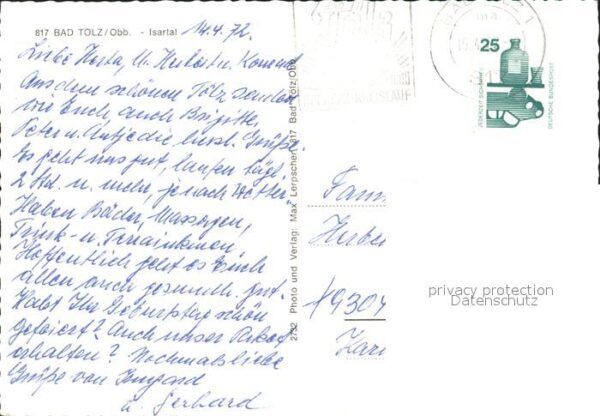 817 BAD TÖLZ/Obb. - Isartal 14.4.72.
Liebe Herta, u. Herbert u. Konrad
Aus dem schönen Tölz senden
wir Euch, auch Brigitte,
Peter u. Antje die herzl. Grüße.
Es geht uns gut, laufen tägl.
2 Std. u. mehr, je nach Wetter
Haben Bäder, Massagen,
Trink- u. Terrainkuren,
Hoffentlich geht es Euch
allen auch gesundh. gut.
Habt Ihr Geburtstag schön
gefeiert? Auch unser Paket
erhalten? Nochmals liebe
Grüße von Irmgard
u. Gerhard
2732 Photo und Verlag: Max Lerpscher, 817 Bad Tölz/Obb.
25
JEDERZEIT SICHERHEIT
DEUTSCHE BUNDESPOST
Fam
Herbe
Har
privacy protection
Datenschutz